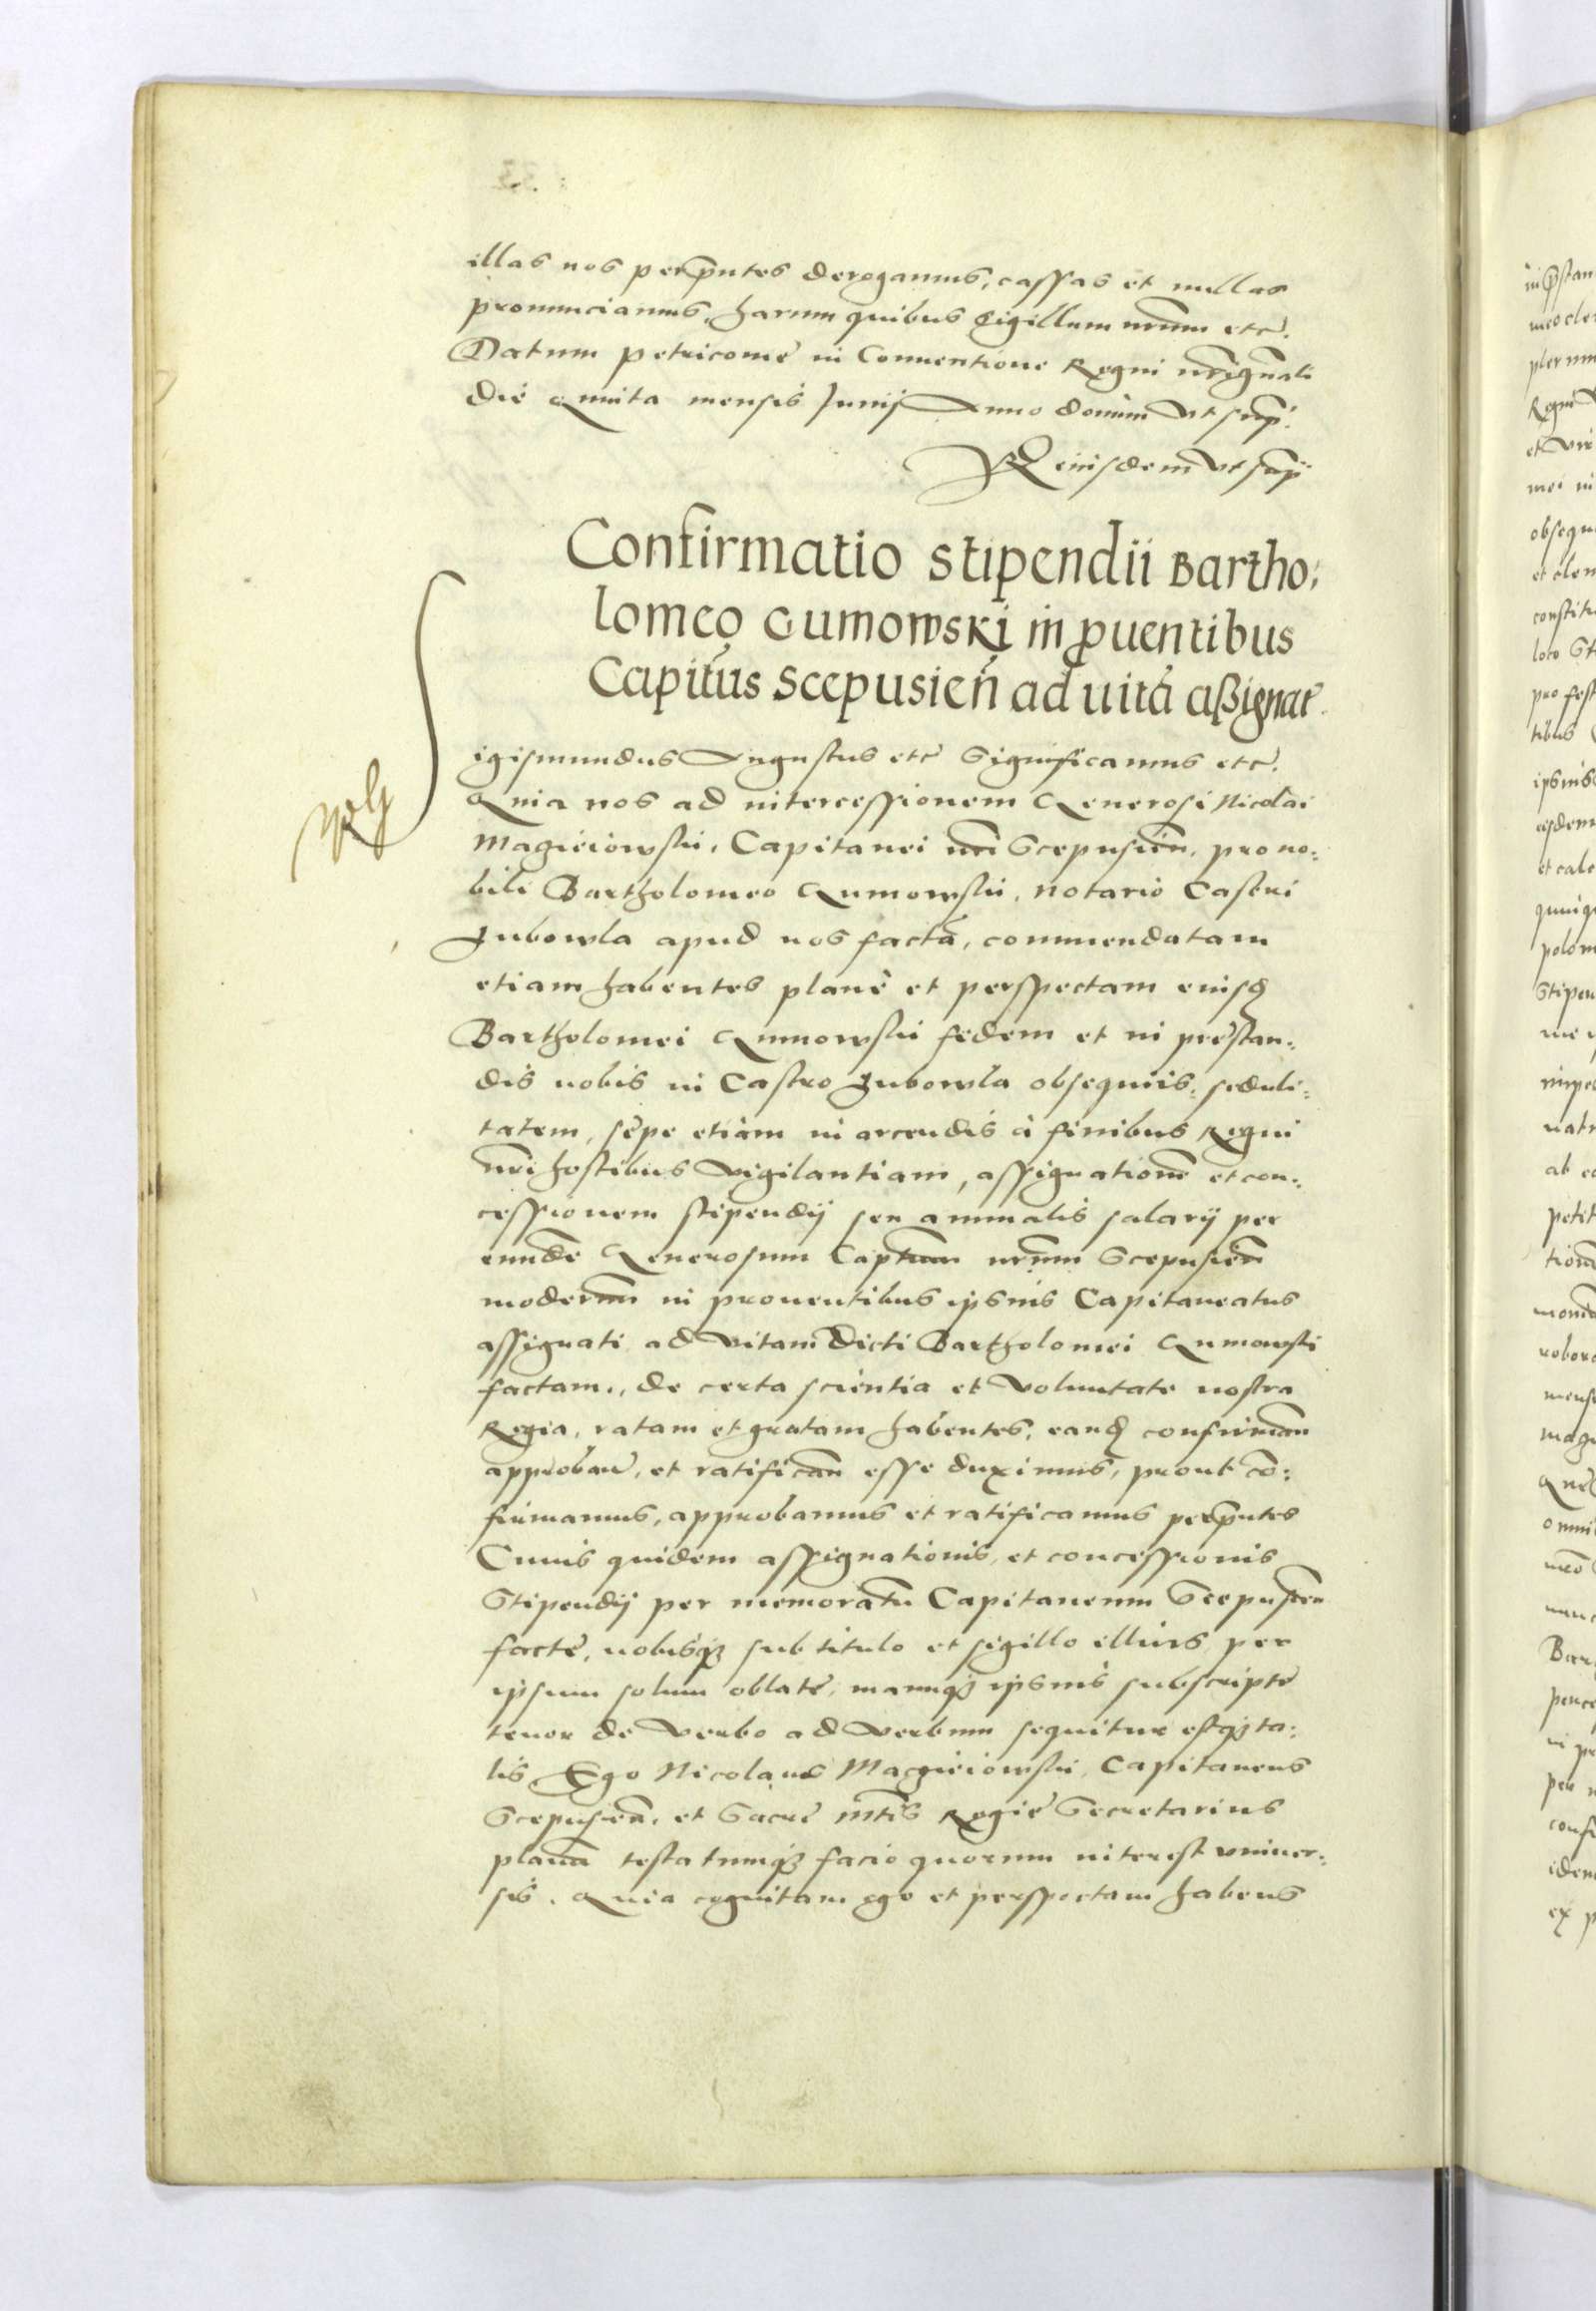 illas nos per p̃ntes derogamus, cassas et nullas
pronunciamus, harum quibus Sigillum nr̃um etc̃.
Datum Petricovie in Conventione Regni nr̃i gñali
die quinta mensis Junij Anno domini ut sup̃.
Rel̃ eiusdem ut sup̃
Confirmatio stipendii Bartho,
lomeo Gumowski in ꝓuentibus
Capit̃us Scepusień ad uitã aßignat̃.
Sigismundus Augustus etc̃ Significamus etc̃.
Quia nos ad intercessionem Generosi Nicolai
Magieiowski, Capitanei nr̃i Scepusień, pro no,
bili Bartholomeo Gumowski, notario Castri
Lubowla apud nos factã, commendatam
etiam habentes planè et perspectam eiusd̃
Bartholomei Gumowski fidem et in prestan,
dis nobis in Castro Lubowla obsequiis, seduli,
tatem, sępe etiam in arcendis à finibus Regni
nr̃i hostibus vigilantiam, assignationẽ et con,
cessionem stipendij seu annualis salarij per
eundẽ Generosum Captũm nr̃um Scepusień
modernũ in proventibus ipsius Capitaneatus
assignati ad vitam dicti Bartholomei Gumowski
factam, de certa scientia et voluntate nostra
Regia, ratam et gratam habentes, eand̃ confirman̄
approban̄, et ratifican̄ esse duximus, prout cõ,
firmamus, approbamus et ratificamus per p̃ntes
Cuius quidem assignationis, et concessionis
Stipendij per memoratũ Capitaneum Scepusień
factę, nobisq₃ sub titulo et sigillo illius per
ipsum solum oblatę, manuq₃ ipsius subscriptę
tenor de verbo ad verbum sequitur estq₃ ta,
lis Ego Nicolaus Macieiowski, Capitaneus
Scepusień, et Sacrę Mt̃is Regię Secretarius
planũ testatumq₃ facio quorum interest univer,
sis. Quia cognitam ego et perspectam habens